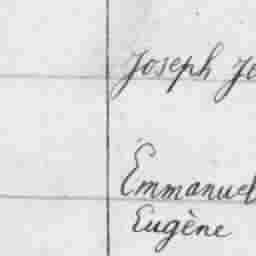 Joseph Jo
Emmanuel
Eugène